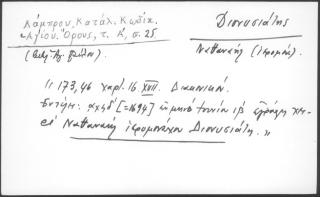 Λάμπρου, Κατάλ. Κωδίκ.
Ἁγίου Ὄρους, τ. Α', σ. 25
Διονυσιάτης
Ναθαναὴλ (ἱερομόν.)
" 173,46 χαρτ. 16. XVII. Διακονικόν.
Ἐν τέλει: αχϟδ' [=1694] ἐν μηνὶ ἰουνίῳ ιβ ἐγράφη
Ναθαναὴλ ἱερομονάχου Διονυσιάτη. "